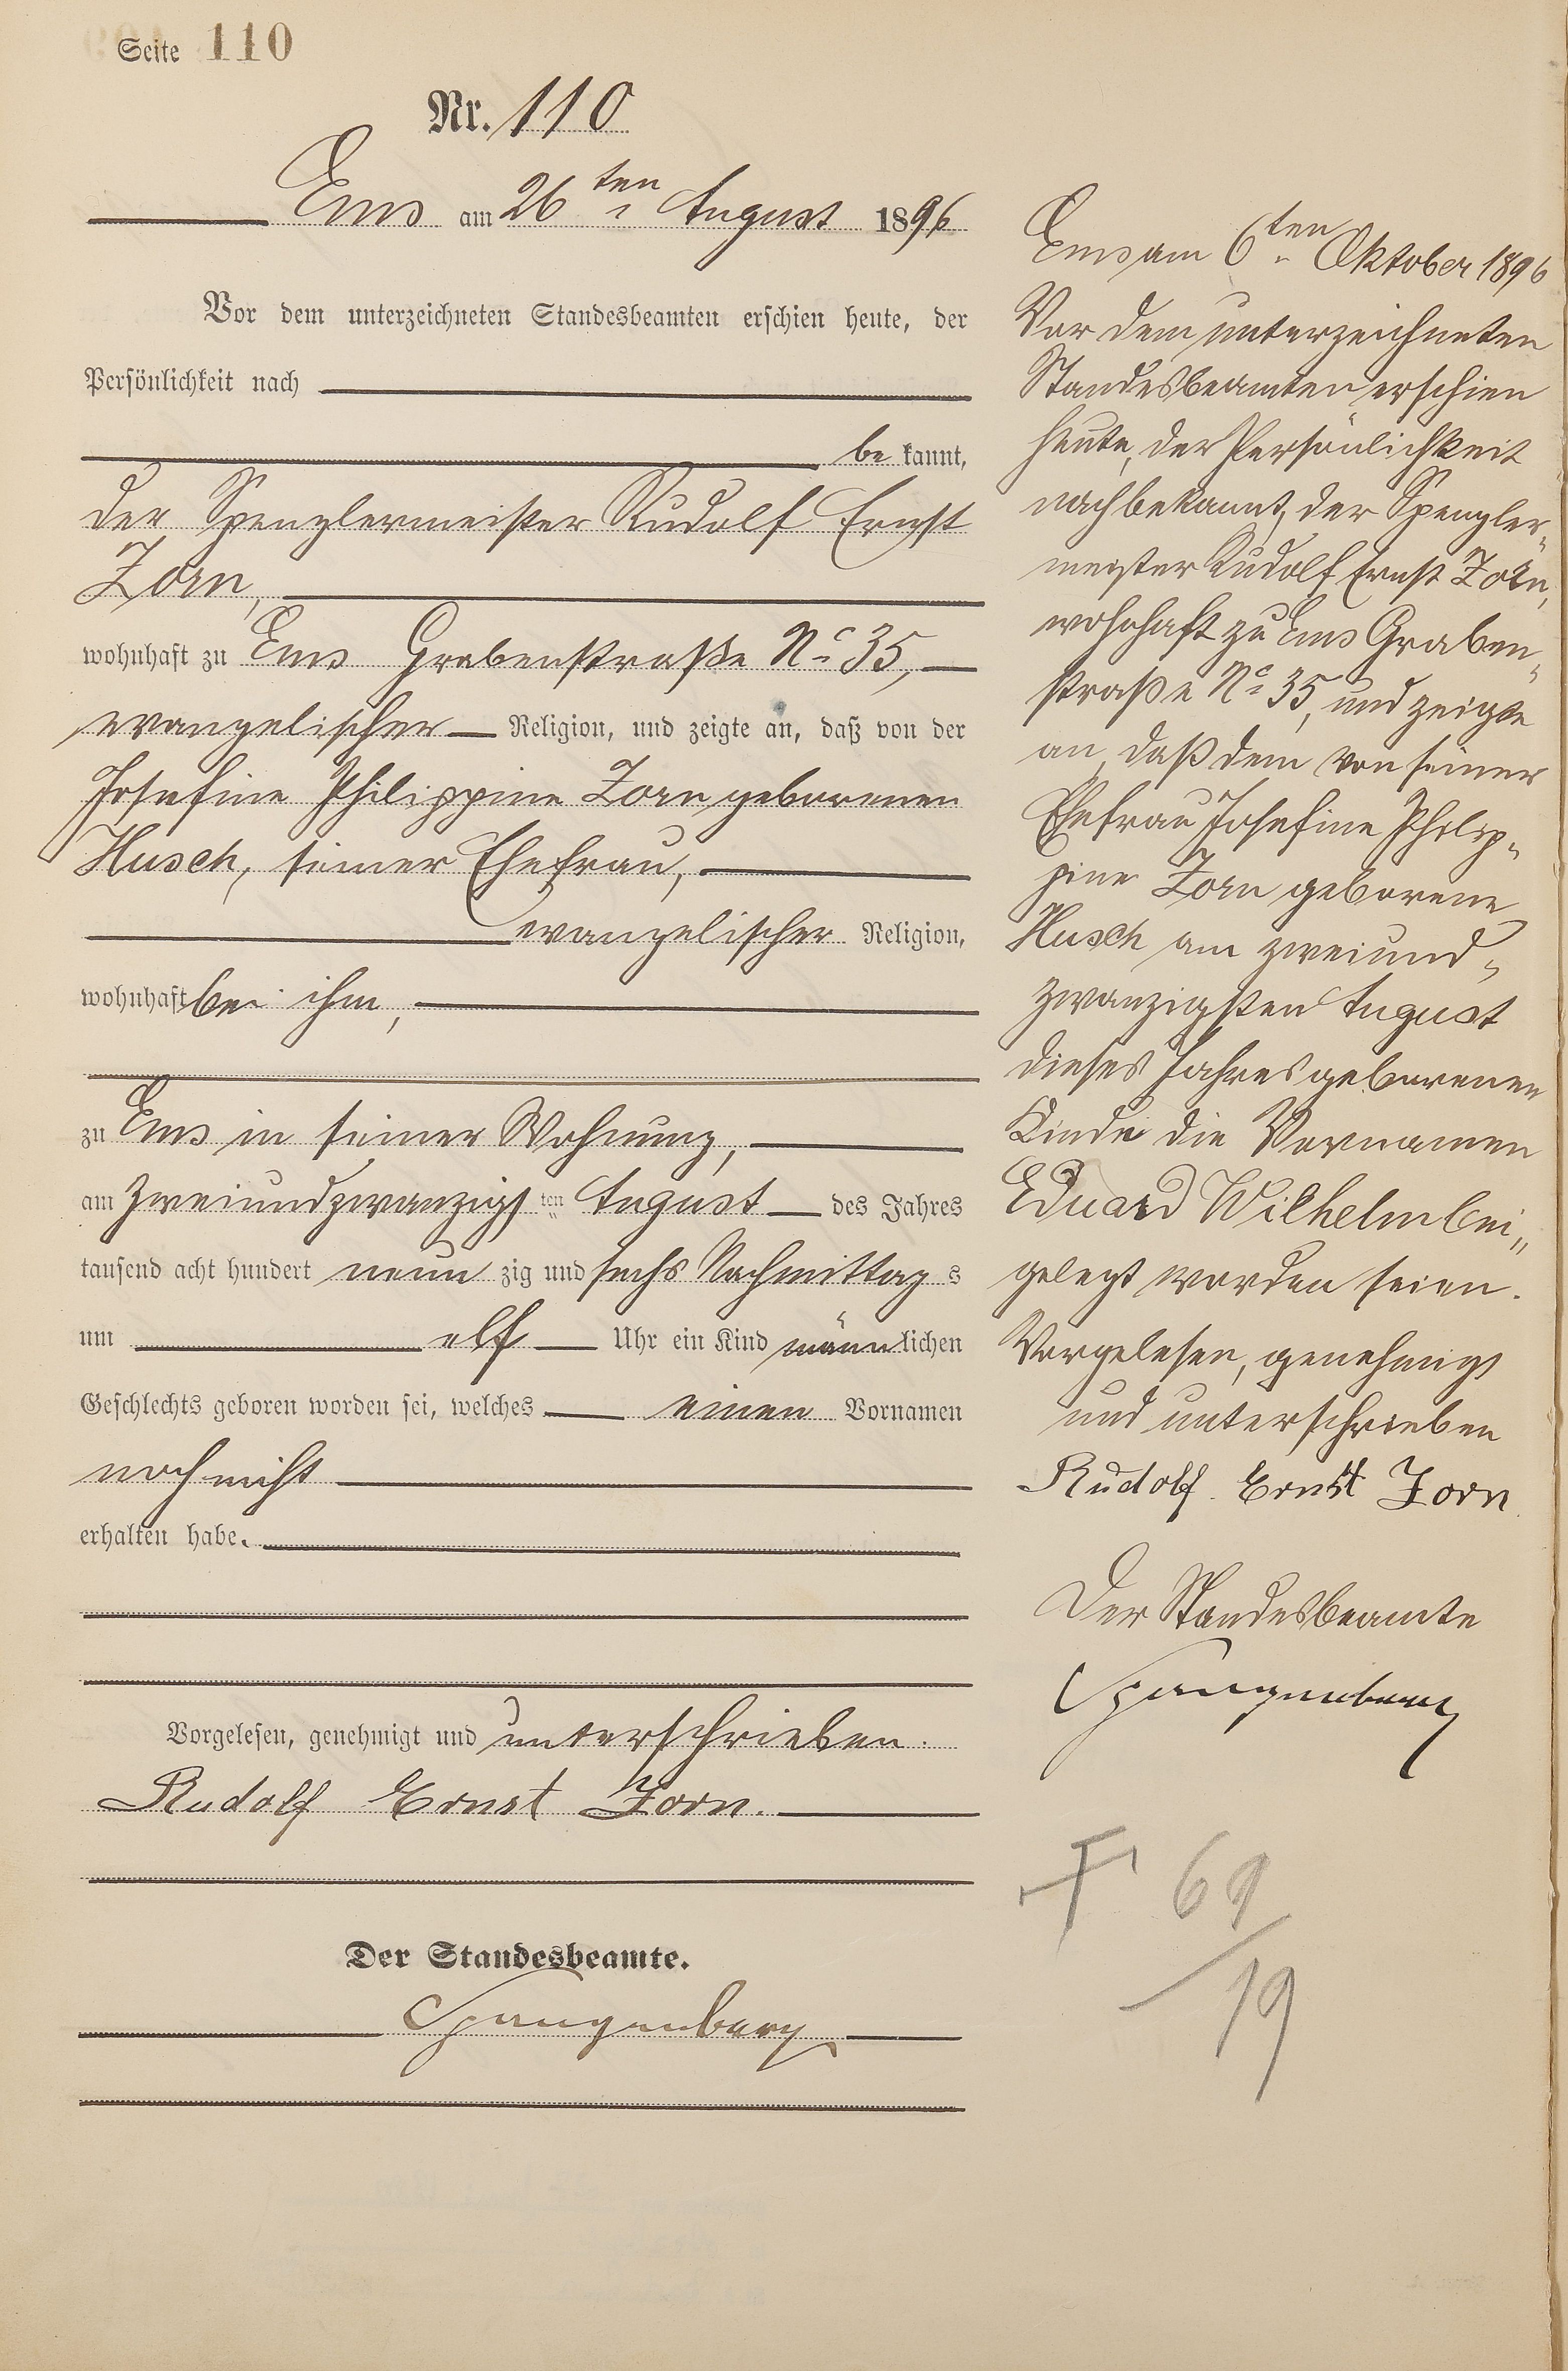 Seite 110
Nr. 110
Ems am 26ten August 1896
Vor dem unterzeichneten Standesbeamten erschien heute, der
Persönlichkeit nach
be kannt,
der Spenglermeister Rudolf Ernst
Zorn,
wohnhaft zu Ems Grabenstraße No 35,
evangelischer Religion, und zeigte an, daß von der
Josefine Philippine Zorn geborenen
Husch, seiner Ehefrau,
evangelischer Religion,
wohnhaft bei ihm,
zu Ems in seiner Wohnung,
am zweiundzwanzigsten August des Jahres
tausend acht hundert neun zig und sechs Nachmittag s
um elf Uhr ein Kind männlichen
Geschlechts geboren worden sei, welches einen Vornamen
noch nicht
erhalten habe.
Vorgelesen, genehmigt und unterschrieben.
Rudolf Ernst Zorn.
Der Standesbeamte.
Spangenberg
Ems am 6ten Oktober 1896
Vor dem unterzeichneten
Standesbeamten erschien
heute, der Persönlichkeit
nach bekannt, der Spengler-
meister Rudolf Ernst Zorn,
wohnhaft zu Ems Graben-
straße No 35, und zeigte
an, daß dem von seiner
Ehefrau Josefine Philip-
pine Zorn geborene
Husch am zweiund-
zwanzigsten August
dieses Jahres geborenen
Kinde die Vornamen
Eduard Wilhelm bei-
gelegt worden seien.
Vorgelesen, genehmigt
und unterschrieben
Rudolf Ernst Zorn
Der Standesbeamte
Spangenberg
69
19